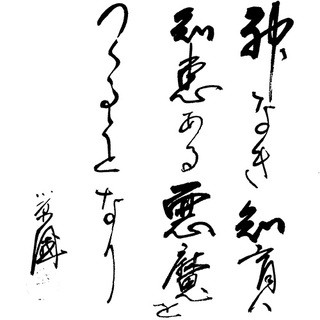 神なき知育ハ
知恵ある悪魔を
つくることなり